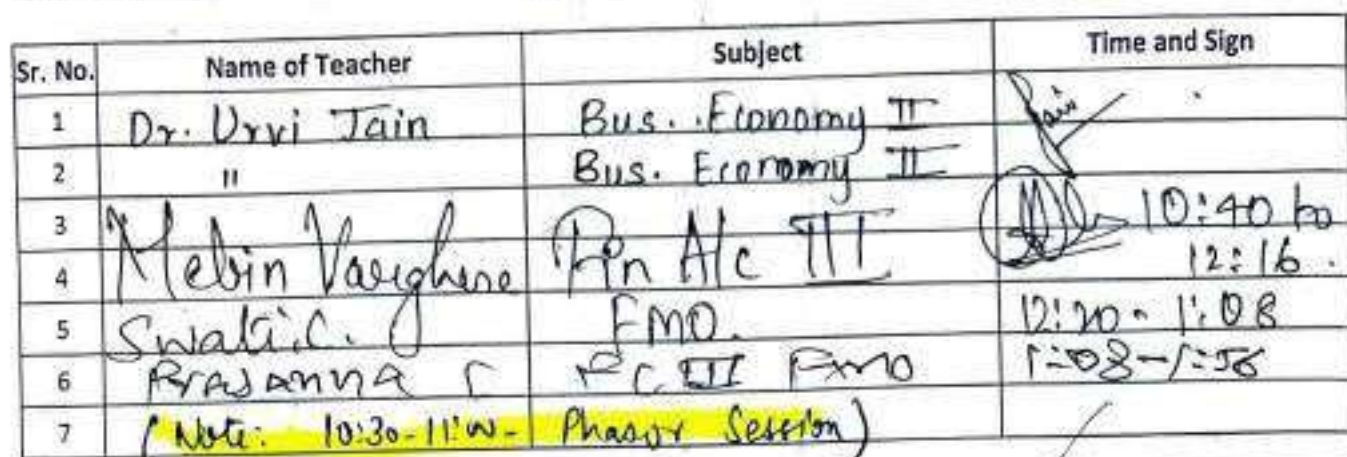 Sr. No. Name of Teacher Subject Time and Sign
1 Dr. Urvi Jain Bus. Economy II Jain
2 " Bus. Economy II
3 Melvin Varghese Fin A/c III 10:40 to
4 12:16.
5 Swati.C. FMO. 12:20 - 1:08
6 Prasanna C FC III FMO 1:08-1:58
7 (Note: 10:30-11:00- Session)